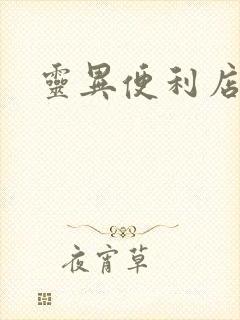 靈異便利店
夜宵草